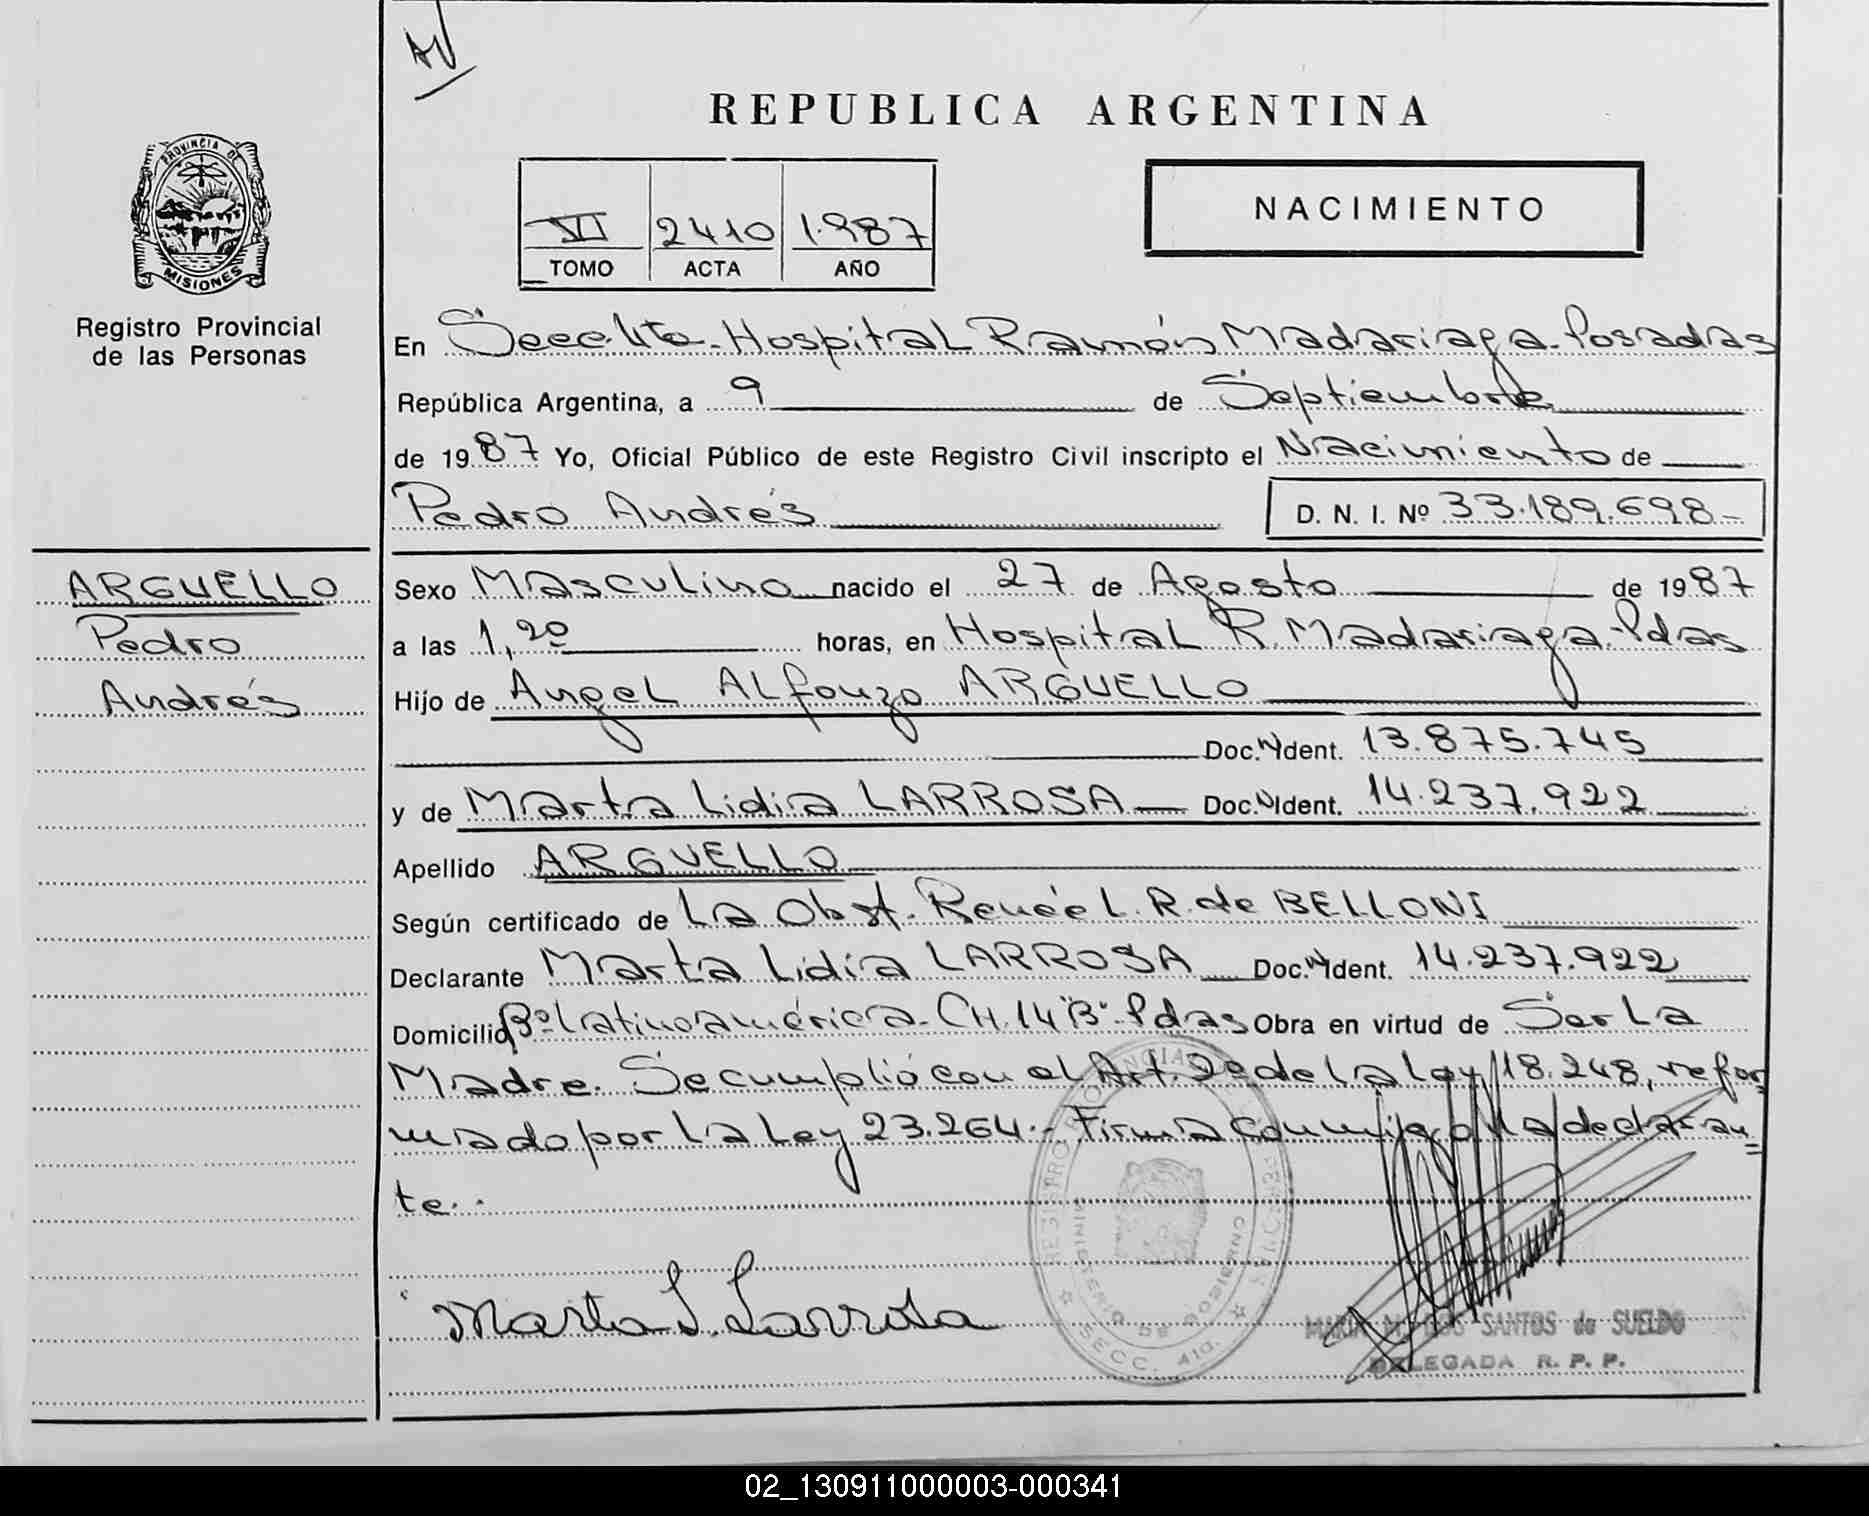 AV
PROVINCIA DE
MISIONES
Registro Provincial
de las Personas
REPUBLICA ARGENTINA
VI 2410 1.987
TOMO ACTA AÑO
NACIMIENTO
En Secc. 4ta. Hospital Ramón Madariaga. Posadas
República Argentina, a 9 de Septiembre
de 1987 Yo, Oficial Público de este Registro Civil inscripto el Nacimiento de
Pedro Andrés D. N. I. Nº 33.189.698-
ARGUELLO
Pedro
Andrés
Sexo Masculino nacido el 27 de Agosto de 1987
a las 1,20 horas, en Hospital R. Madariaga-Pdas
Hijo de Angel Alfonzo ARGUELLO
Doc. Ident. 13.875.745
y de Marta Lidia LARROSA Doc. Ident. 14.237.922
Apellido ARGUELLO
Según certificado de La Obst. Renée L. R. de BELLONI
Declarante Marta Lidia LARROSA Doc. Ident. 14.237.922
Domicilio Bº Latinoamérica. CH. 14 "B" Pdas Obra en virtud de Ser La
Madre. Se cumplió con el Art. 2º de la Ley 18.248, refor
mado por la Ley 23.264.- Firma conmigo la declaran=
te.-
Marta L. Larrosa
REGISTRO PROVINCIAL DE LAS PERSONAS
MINISTERIO DE GOBIERNO
SECC. 4ta.
MARIA DOS SANTOS de SUELDO
DELEGADA R. P. P.
02_130911000003-000341